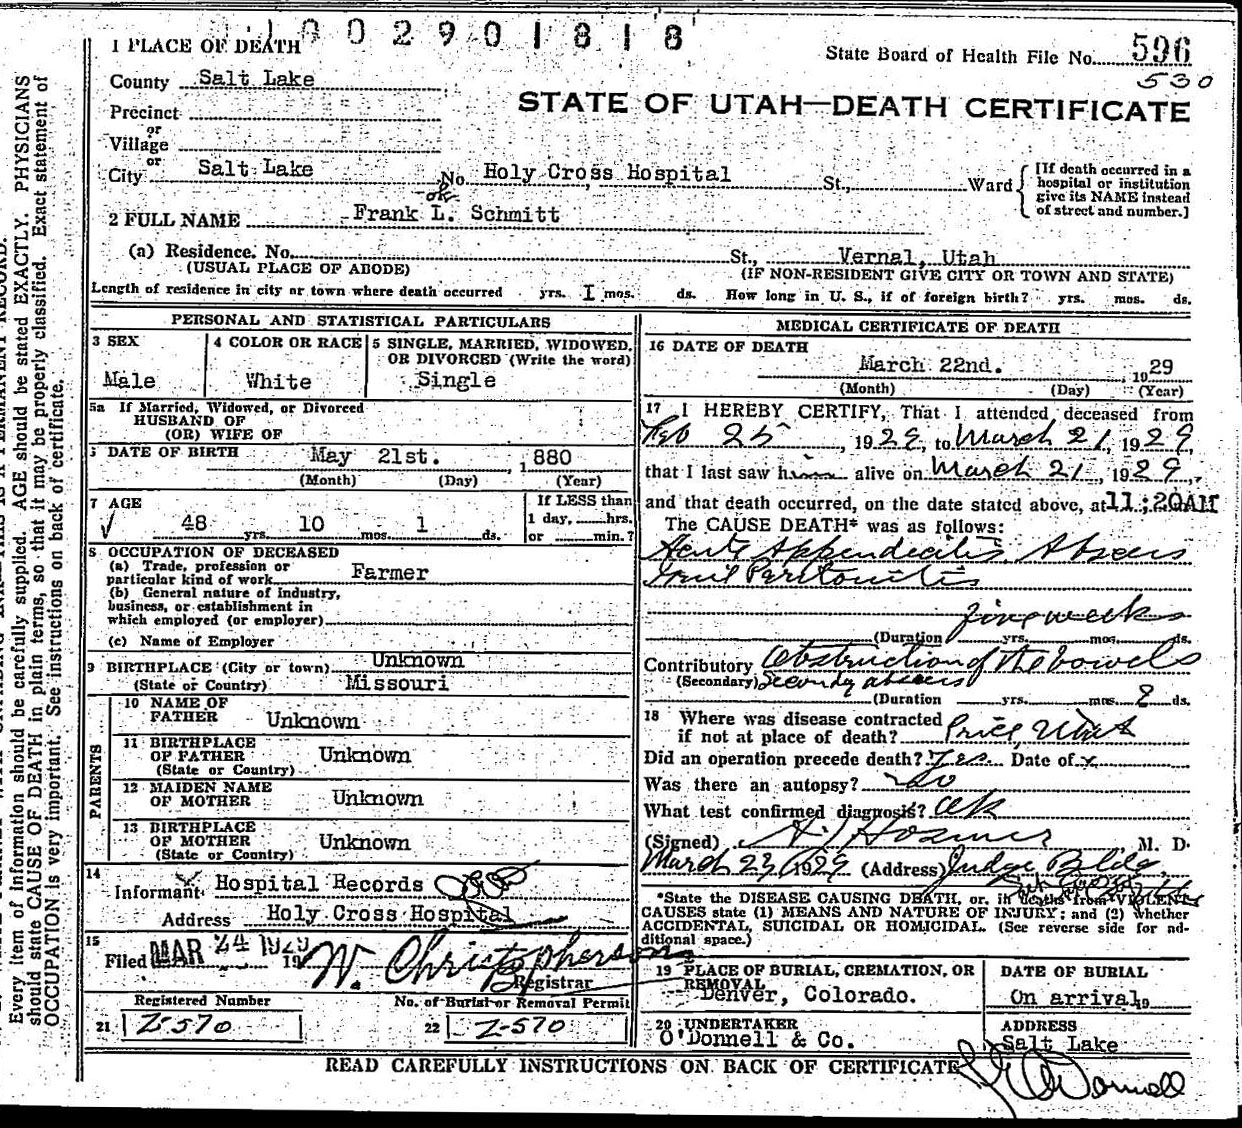 1002901818
1 PLACE OF DEATH
State Board of Health File No. 596
530
County Salt Lake
STATE OF UTAH—DEATH CERTIFICATE
Precinct
or
Village
or
City Salt Lake No. Holy Cross Hospital St., Ward
[If death occurred in a
hospital or institution
give its NAME instead
of street and number.]
ok
2 FULL NAME Frank L. Schmitt
(a) Residence. No. St., Vernal, Utah
(USUAL PLACE OF ABODE) (IF NON-RESIDENT GIVE CITY OR TOWN AND STATE)
Length of residence in city or town where death occurred yrs. I mos. ds. How long in U. S., if of foreign birth? yrs. mos. ds.
PERSONAL AND STATISTICAL PARTICULARS
3 SEX
Male
4 COLOR OR RACE
White
5 SINGLE, MARRIED, WIDOWED,
OR DIVORCED (Write the word)
Single
5a If Married, Widowed, or Divorced
HUSBAND OF
(OR) WIFE OF
DATE OF BIRTH May 21st. , 1880
(Month) (Day) (Year)
7 AGE
48 yrs. 10 mos. 1 ds.
If LESS than
1 day, hrs.
or min.?
8 OCCUPATION OF DECEASED
(a) Trade, profession or
particular kind of work Farmer
(b) General nature of industry,
business, or establishment in
which employed (or employer)
(c) Name of Employer
9 BIRTHPLACE (City or town) Unknown
(State or Country) Missouri
PARENTS
10 NAME OF
FATHER Unknown
11 BIRTHPLACE
OF FATHER Unknown
(State or Country)
12 MAIDEN NAME
OF MOTHER Unknown
13 BIRTHPLACE
OF MOTHER Unknown
(State or Country)
14
Informant Hospital Records
Address Holy Cross Hospital
15
Filed MAR 24 1929 19 W. Christopherson
Registrar
Registered Number
21 Z-570
No. of Burial or Removal Permit
22 Z-570
MEDICAL CERTIFICATE OF DEATH
16 DATE OF DEATH
March 22nd. , 1929
(Month) (Day) (Year)
17 I HEREBY CERTIFY, That I attended deceased from
Feb 25 , 1929, to March 21, 1929,
that I last saw him alive on March 21, 1929,
and that death occurred, on the date stated above, at 11:20AM
The CAUSE DEATH* was as follows:
Acute Appendicitis, Abscess
Peritonitis
five weeks
(Duration yrs. mos. ds.
Contributory Obstruction of the bowels
(Secondary) Secondy abscess
(Duration yrs. mos. 2 ds.
18 Where was disease contracted
if not at place of death? Price, Utah
Did an operation precede death? Yes Date of
Was there an autopsy? No
What test confirmed diagnosis?
(Signed) Hosmer, M. D.
March 23, 1929 (Address) Judge Bldg.
*State the DISEASE CAUSING DEATH, or, in deaths from VIOLENT
CAUSES state (1) MEANS AND NATURE OF INJURY; and (2) whether
ACCIDENTAL, SUICIDAL OR HOMICIDAL. (See reverse side for ad-
ditional space.)
19 PLACE OF BURIAL, CREMATION, OR
REMOVAL
Denver, Colorado.
DATE OF BURIAL
On arrival,
20 UNDERTAKER
O'Donnell & Co.
ADDRESS
Salt Lake
READ CAREFULLY INSTRUCTIONS ON BACK OF CERTIFICATE
O'Donnell
Every item of information should be carefully supplied. AGE should be stated EXACTLY. PHYSICIANS
should state CAUSE OF DEATH in plain terms, so that it may be properly classified. Exact statement of
OCCUPATION is very important. See instructions on back of certificate.